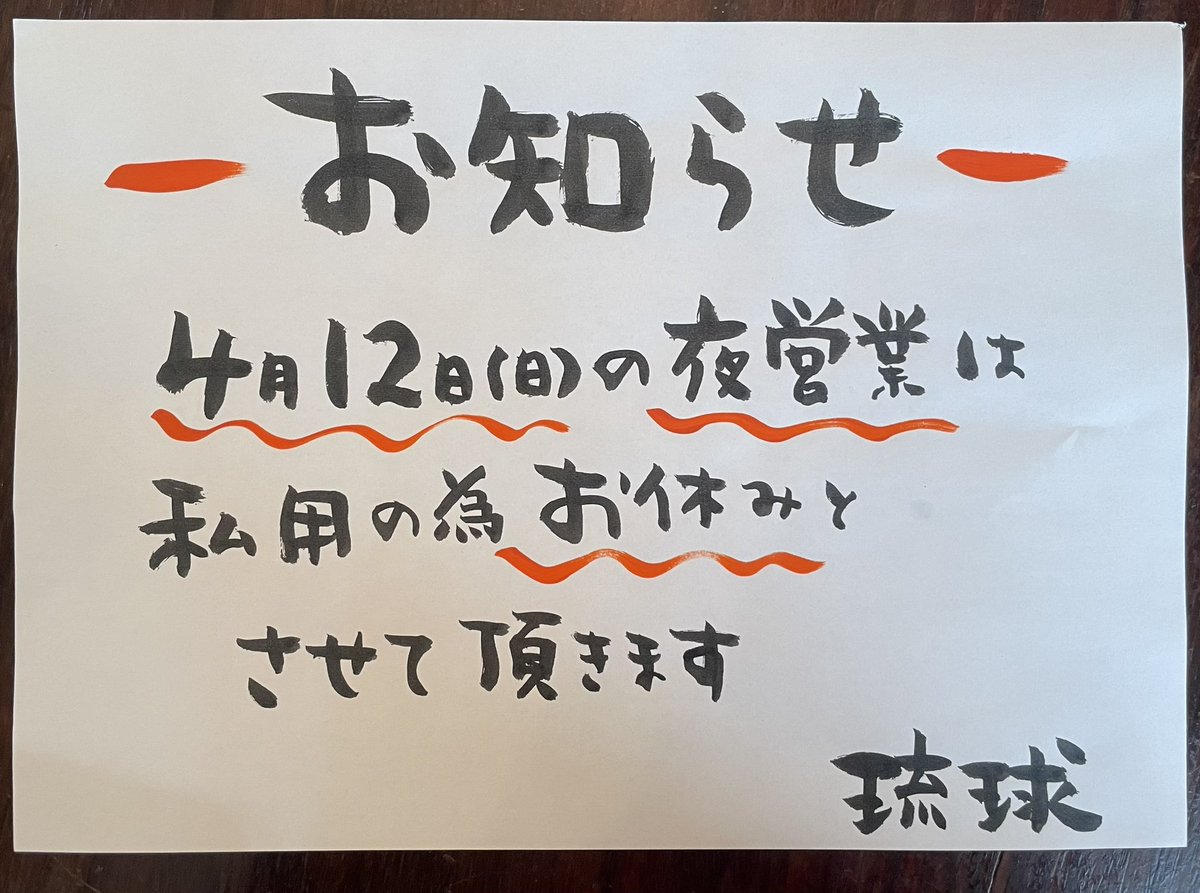 お知らせ
4月12日(日)の夜営業は
私用の為お休みと
させて頂きます
琉球